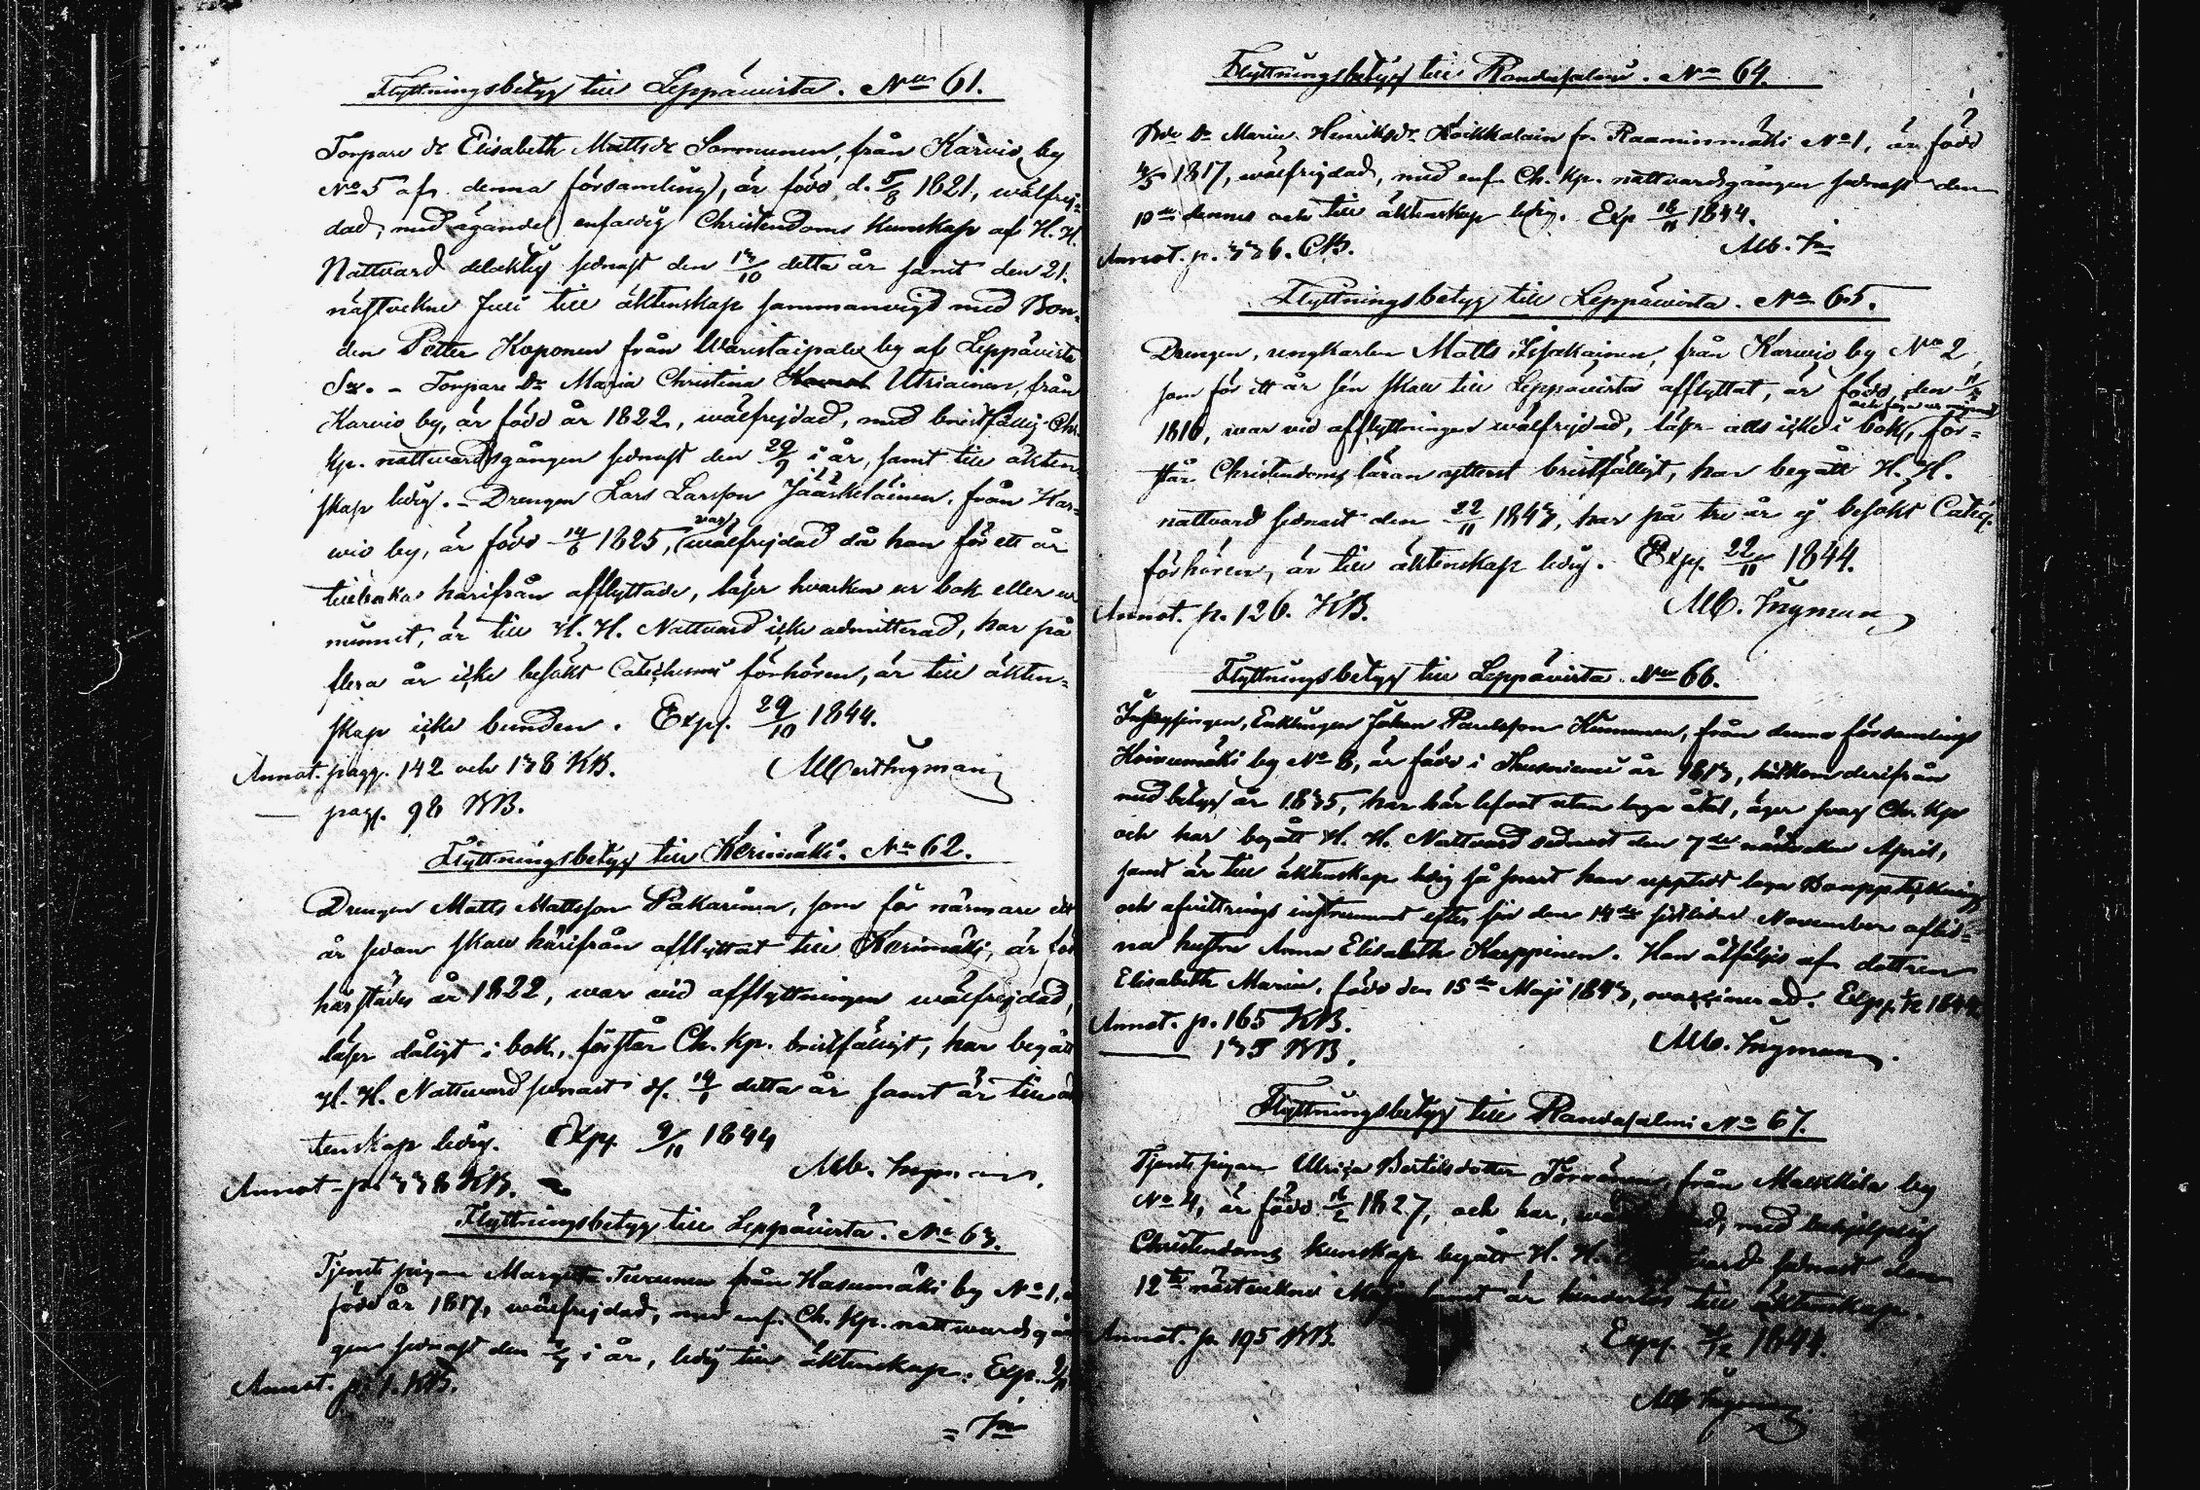 Flyttningsbetyg till Leppävirta. No 61.
Torpare dr Elisabeth Mattsdr Sormunen, från Karvio by
No 5 af denna församling, är född d. 5/8 1821, wälfrej=
dad, med ägande enfaldig Christendoms Kunskap af H. H.
Nattvard delaktig sednast den 13/10 detta år samt den 21.
nästvekne Juli till äktenskap sammanvigd med Bon=
den Petter Koponen från Waristaipale by af Leppävirta
Sn. – Torpare Dr Maria Christina Utriainen, från
Karvio by, är född år 1822, wälfrejdad, med bristfällig Chr.
Kp. nattvardsgången sednast den 29/9 i år, samt till äkten=
skap ledig. – Drengen Lars Larsson Jääskeläinen, från Kar=
vio by, är född 14/6 1825, var wälfrejdad då han för ett år
tillbaka härifrån afflyttade, läser hvarken ur bok eller ur
minnet, är till H. H. Nattvard icke admitterad, har på
flera år icke besökt Catechismi förhören, är till äkten=
skap icke bunden. Exp. 29/10 1844.
Annot. pagg. 142 och 138 KB.
pag. 98 KB.
Flyttningsbetyg till Kerimäki. No 62.
Drengen Matts Mattsson Pakarinen, som för närmare ett
år sedan skall härifrån afflyttat till Kerimäki, är född
härstädes år 1822, war vid afflyttningen wälfrejdad,
läser dåligt i bok, förstår Ch. Kp. bristfälligt, har begått
H. H. Nattvard sednast d. 14/1 detta år samt är till äk
tenskap ledig. Exp. 9/11 1844
Mb. Ingman.
Annot. p. 338 KB.
Flyttningsbetyg till Leppävirta. No 63.
Tjenstepigan Margeta Turunen från Hasumäki by No 1, är
född år 1817, wälfrejdad, med enf. Ch. Kp. nattvardsgån
gen sednast den i år, ledig till äktenskap. Exp.
Annot. p. 1. KB.
Flyttningsbetyg till Randasalmi. No 64.
Bde Dr Maria Henriksdr Loikkalain fr. Raaminmäki No 1, är född
4/5 1817, wälfrejdad, med enf. Ch. Kp. nattvardsgången sednast den
10de dennes och till äktenskap ledig. Exp. 18/11 1844.
Annot. p. 336. KB.
Flyttningsbetyg till Leppävirta. No 65.
Drengen, ungkarlen Matts Issakainen, från Karvio by No 2,
som för ett år sen skall till Leppävirta afflyttat, är född den
1816, war vid afflyttningen wälfrejdad, läser alls icke i bok, för=
står Christendoms läran ytterst bristfälligt, har begått H. H.
nattvard sednast den 22/11 1843, har på tre år ej besökt Catech.
förhören, är till äktenskap ledig. Exp. 22/11 1844.
Mb. Ingman
Annot. p. 126. KB.
Flyttningsbetyg till Leppävirta. No 66.
Inhysingen, Enklingen Johan Paulsson Kumunen, från denna församlings
Koivumäki by No 8, är född i år 1813, hitkom derifrån
med betyg år 1835, har här lefvat utan laga åtal, äger svag Ch. Kp
och har begått H. H. Nattvard sednast den 7de nästvekne April,
samt är till äktenskap ledig så snart han upptedt laga Bouppteckning
och afvittrings instrument efter sin den 14de sistlidne November aflid=
na hustru Anna Elisabeth Karppinen. Han åtföljes af dottren
Elisabeth Maria, född den 15de Maji 1843, ovaccinerad. Exp. 1844.
Mb. Ingman.
Annot. p. 165 KB.
135 KB.
Flyttningsbetyg till Randasalmi No 67.
Tjenstepigan Ulrica Bertilsdotter Torvinen, från Malkkila by
No 4, är född 1827, och har, med behjelplig
Christendoms kunskap begått H. H. sednast den
12te nästvekne Maji samt är hinderlös till äktenskap.
Exp. 1844.
Annot. p. 195 KB.
Mb Ingman